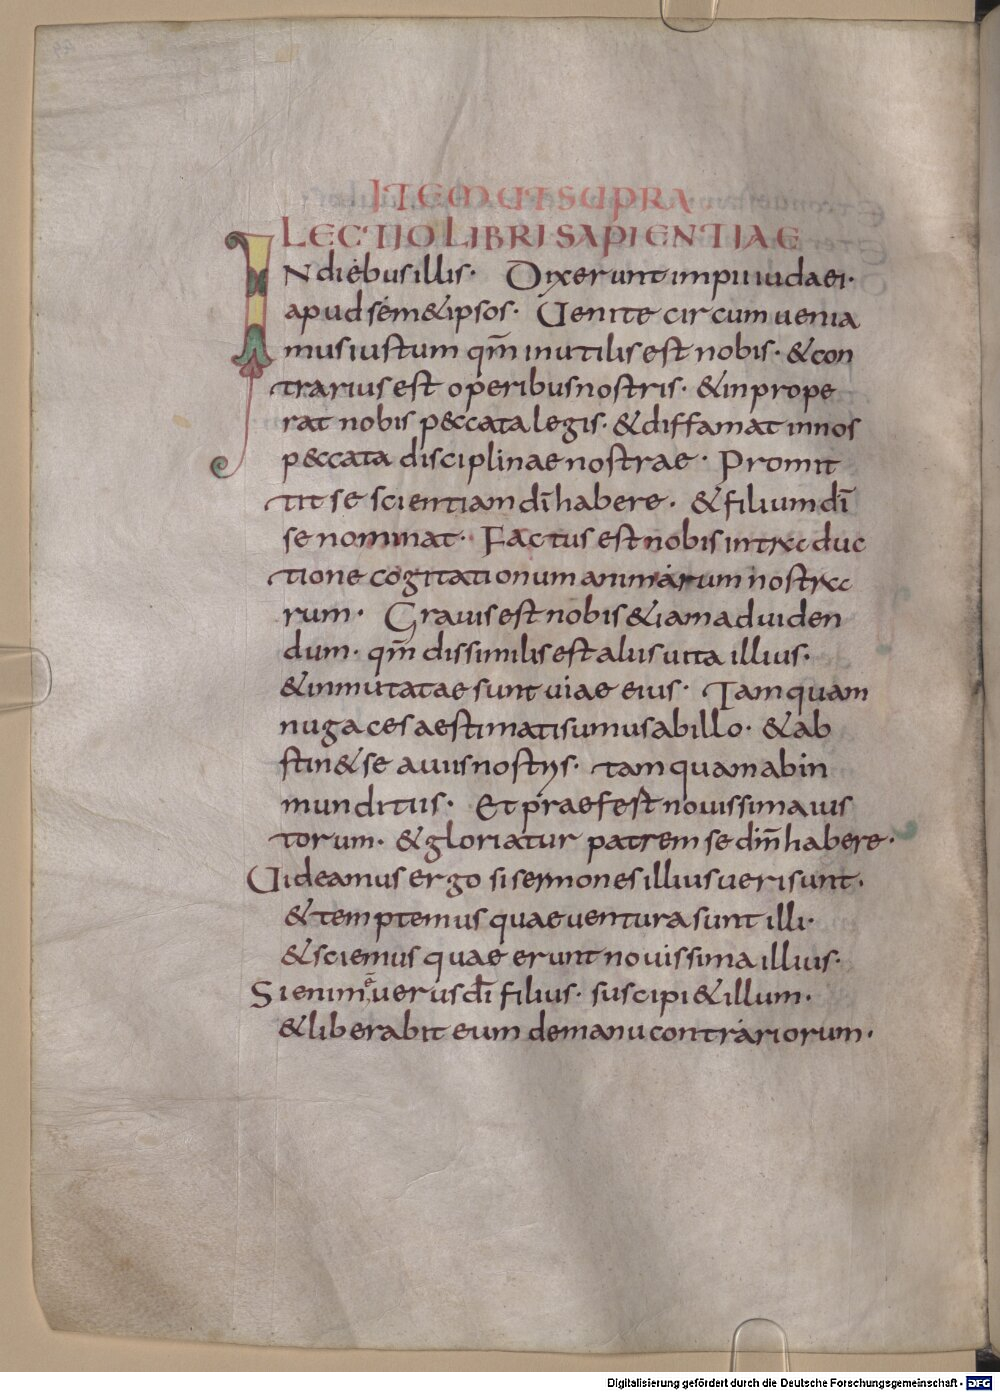 ITEM UT SUPRA
LECTIO LIBRI SAPIENTIAE
IN diebus illis· Dixerunt impii iudaei·
apud sem&ipsos· Uenite circumuenia
mus iustum qm̄ inutilis est nobis· & con
trarius est operibus nostris· & inprope
rat nobis pęccata legis· & diffamat in nos
p&ccata disciplinae nostrae· Promit
tit se scientiam dī habere· & filium dī
se nominat· Factus est nobis in traduc
tione cogitationum animarum nostra
rum· Grauis est nobis & iam ad uiden
dum· qm̄ dissimilis est aliis uita illius·
& inmutatae sunt uiae eius· Tamquam
nugaces aestimati sumus ab illo· & ab
stin& se a uiis nostris· tamquam ab in
munditiis· Et praefest nouissima ius
torum· & gloriatur patrem se dm̄ habere·
Uideamus ergo si sermones illius ueri sunt·
& temptemus quae uentura sunt illi·
& sciemus quae erunt nouissima illius·
Si enim ē uerus dī filius· suscipi& illum·
& liberabit eum de manu contrariorum·
Digitalisierung gefördert durch die Deutsche Forschungsgemeinschaft - DFG